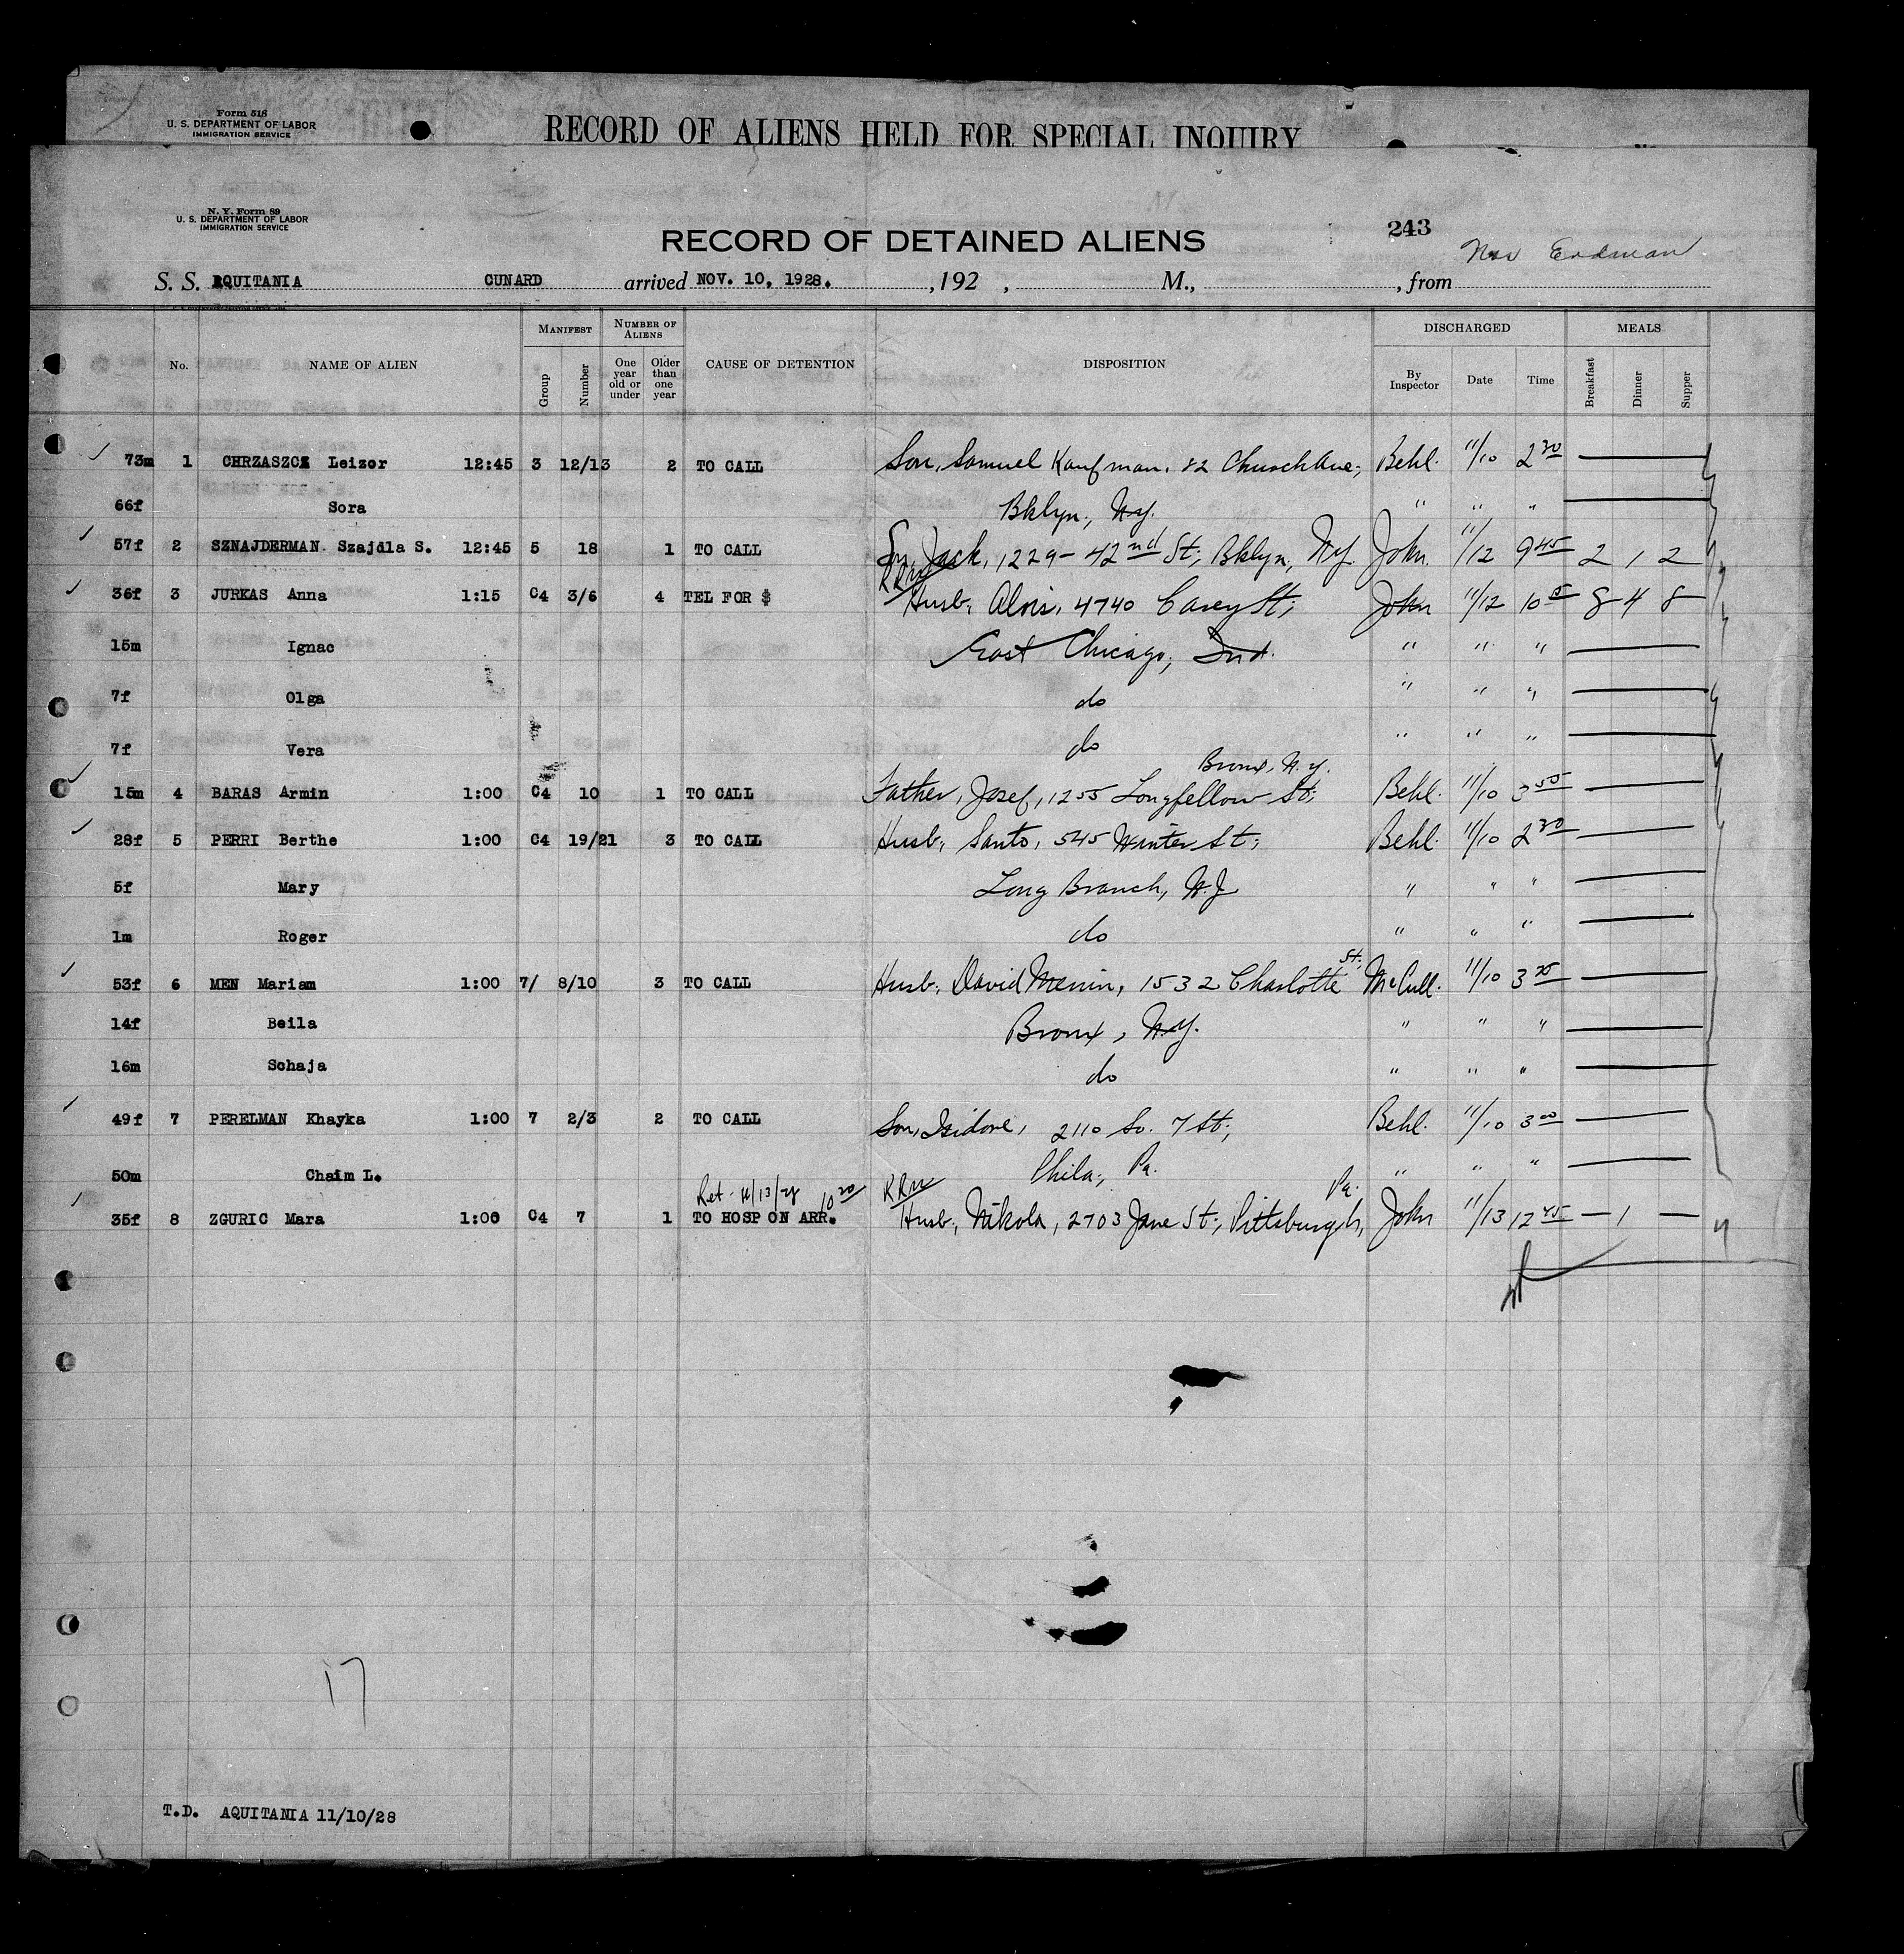 Form 518
U. S. DEPARTMENT OF LABOR
IMMIGRATION SERVICE
RECORD OF ALIENS HELD FOR SPECIAL INQUIRY
N. Y. Form 89
U. S. DEPARTMENT OF LABOR
IMMIGRATION SERVICE
243
RECORD OF DETAINED ALIENS
S. S. AQUITANIA CUNARD arrived NOV. 10, 1928. , 192 , M., , from
No. NAME OF ALIEN MANIFEST Group Number NUMBER OF ALIENS One year old or under Older than one year CAUSE OF DETENTION DISPOSITION DISCHARGED By Inspector Date Time MEALS Breakfast Dinner Supper
73m 1 CHRZASZCZ Leizor 12:45 3 12/13 2 TO CALL Son, Samuel Kaufman, 82 Church Ave; Behl. 11/10 2 30
66f Sora Bklyn, N.Y. " " "
57f 2 SZNAJDERMAN Szajdla S. 12:45 5 18 1 TO CALL Son, Jack, 1229 - 42nd St; Bklyn, N.Y. John. 11/12 9 45 2 1 2
36f 3 JURKAS Anna 1:15 C4 3/6 4 TEL FOR $ Husb, Alois, 4740 Carey St; John 11/12 10 8 4 8
15m Ignac East Chicago, Ind. " " "
7f Olga do " " "
7f Vera do " " "
Bronx, N.Y.
15m 4 BARAS Armin 1:00 C4 10 1 TO CALL Father, Josef, 1255 Longfellow St; Behl. 11/10 3 50
28f 5 PERRI Berthe 1:00 C4 19/21 3 TO CALL Husb, Santo, 545 Winter St; Behl. 11/10 2 30
5f Mary Long Branch, N.J. " " "
1m Roger do " " "
53f 6 MEN Mariam 1:00 7/ 8/10 3 TO CALL Husb, David Menin, 1532 Charlotte St; McCull. 11/10 3
14f Beila Bronx, N.Y. " " "
16m Schaja do " " "
49f 7 PERELMAN Khayka 1:00 7 2/3 2 TO CALL Son, Isidore, 2110 So. 7 St; Behl. 11/10 3 00
50m Chaim L. Phila, Pa. " " "
Ret 11/13/28 10 20
35f 8 ZGURIC Mara 1:00 C4 7 1 TO HOSP ON ARR. Husb, Nikola, 2703 Jane St; Pittsburgh, Pa. John 11/13 12 45 1
17
T.D. AQUITANIA 11/10/28